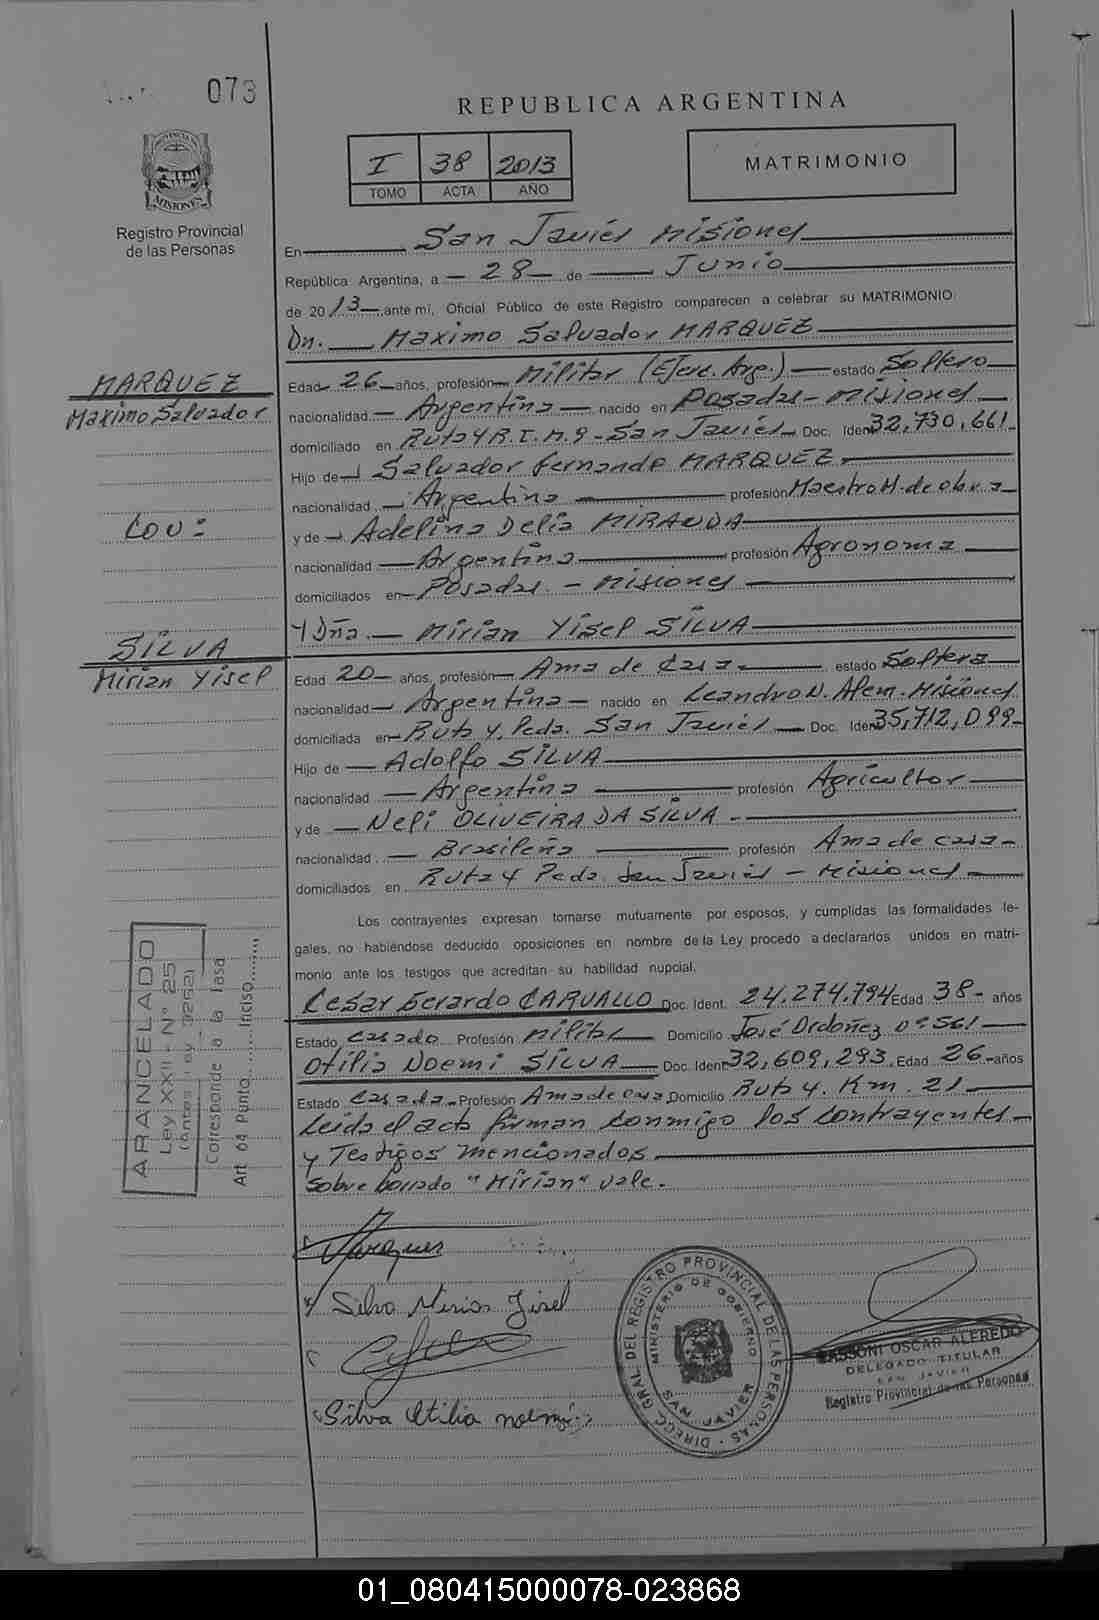 073
REPUBLICA ARGENTINA
I 38 2013
TOMO ACTA AÑO
MATRIMONIO
PROVINCIA DE
MISIONES
Registro Provincial
de las Personas
En San Javier Misiones
República Argentina, a 28 de Junio
de 2013 ante mí, Oficial Público de este Registro comparecen a celebrar su MATRIMONIO
Dn. Maximo Salvador MARQUEZ
MARQUEZ
Maximo Salvador
Edad 26 años, profesión Militar (Ejerc. Arg.) estado Soltero
nacionalidad Argentina nacido en Posadas - Misiones
domiciliado en Ruta 4 R.I.M.9 - San Javier Doc. Ident 32,730,661
Hijo de Salvador Fernando MARQUEZ
nacionalidad Argentina profesión Maestro M. de obra
Con:
y de Adelina Delia MIRANDA
nacionalidad Argentina profesión Agronoma
domiciliados en Posadas - Misiones
Y Dña. Mirian Yisel SILVA
SILVA
Mirian Yisel
Edad 20 años, profesión Ama de Casa estado Soltera
nacionalidad Argentina nacido en Leandro N. Alem - Misiones
domiciliada en Ruta 4, Pcda. San Javier Doc. Ident 35,712,099
Hijo de Adolfo SILVA
nacionalidad Argentina profesión Agricultor
y de Neli OLIVEIRA DA SILVA
nacionalidad Brasileña profesión Ama de casa
domiciliados en Ruta 4 Pcda. San Javier - Misiones
Los contrayentes expresan tomarse mutuamente por esposos, y cumplidas las formalidades le-
gales, no habiéndose deducido oposiciones en nombre de la Ley procedo a declararlos unidos en matri-
monio ante los testigos que acreditan su habilidad nupcial.
Cesar Gerardo CARVALLO Doc. Ident. 24,274,794 Edad 38 años
Estado Casado Profesión Militar Domicilio José Ordoñez nº 561
Otilia Noemi SILVA Doc. Ident 32,609,293 Edad 26 años
Estado Casada Profesión Ama de Casa Domicilio Ruta 4. Km. 21
Leida el acta firman conmigo los contrayentes
y Testigos mencionados
Sobre borrado "Mirian" vale.
ARANCELADO
Ley XXII - Nº 25
(Antes Ley 3252)
Corresponde a la Tasa
Art 64 Punto Inciso
Marquez
Silva Mirian Yisel
Silva Otilia noemi
DIRECC GRAL DEL REGISTRO PROVINCIAL DE LAS PERSONAS
MINISTERIO DE GOBIERNO
SAN JAVIER
OSCAR ALFREDO
DELEGADO TITULAR
SAN JAVIER
Registro Provincial de las Personas
01_080415000078-023868